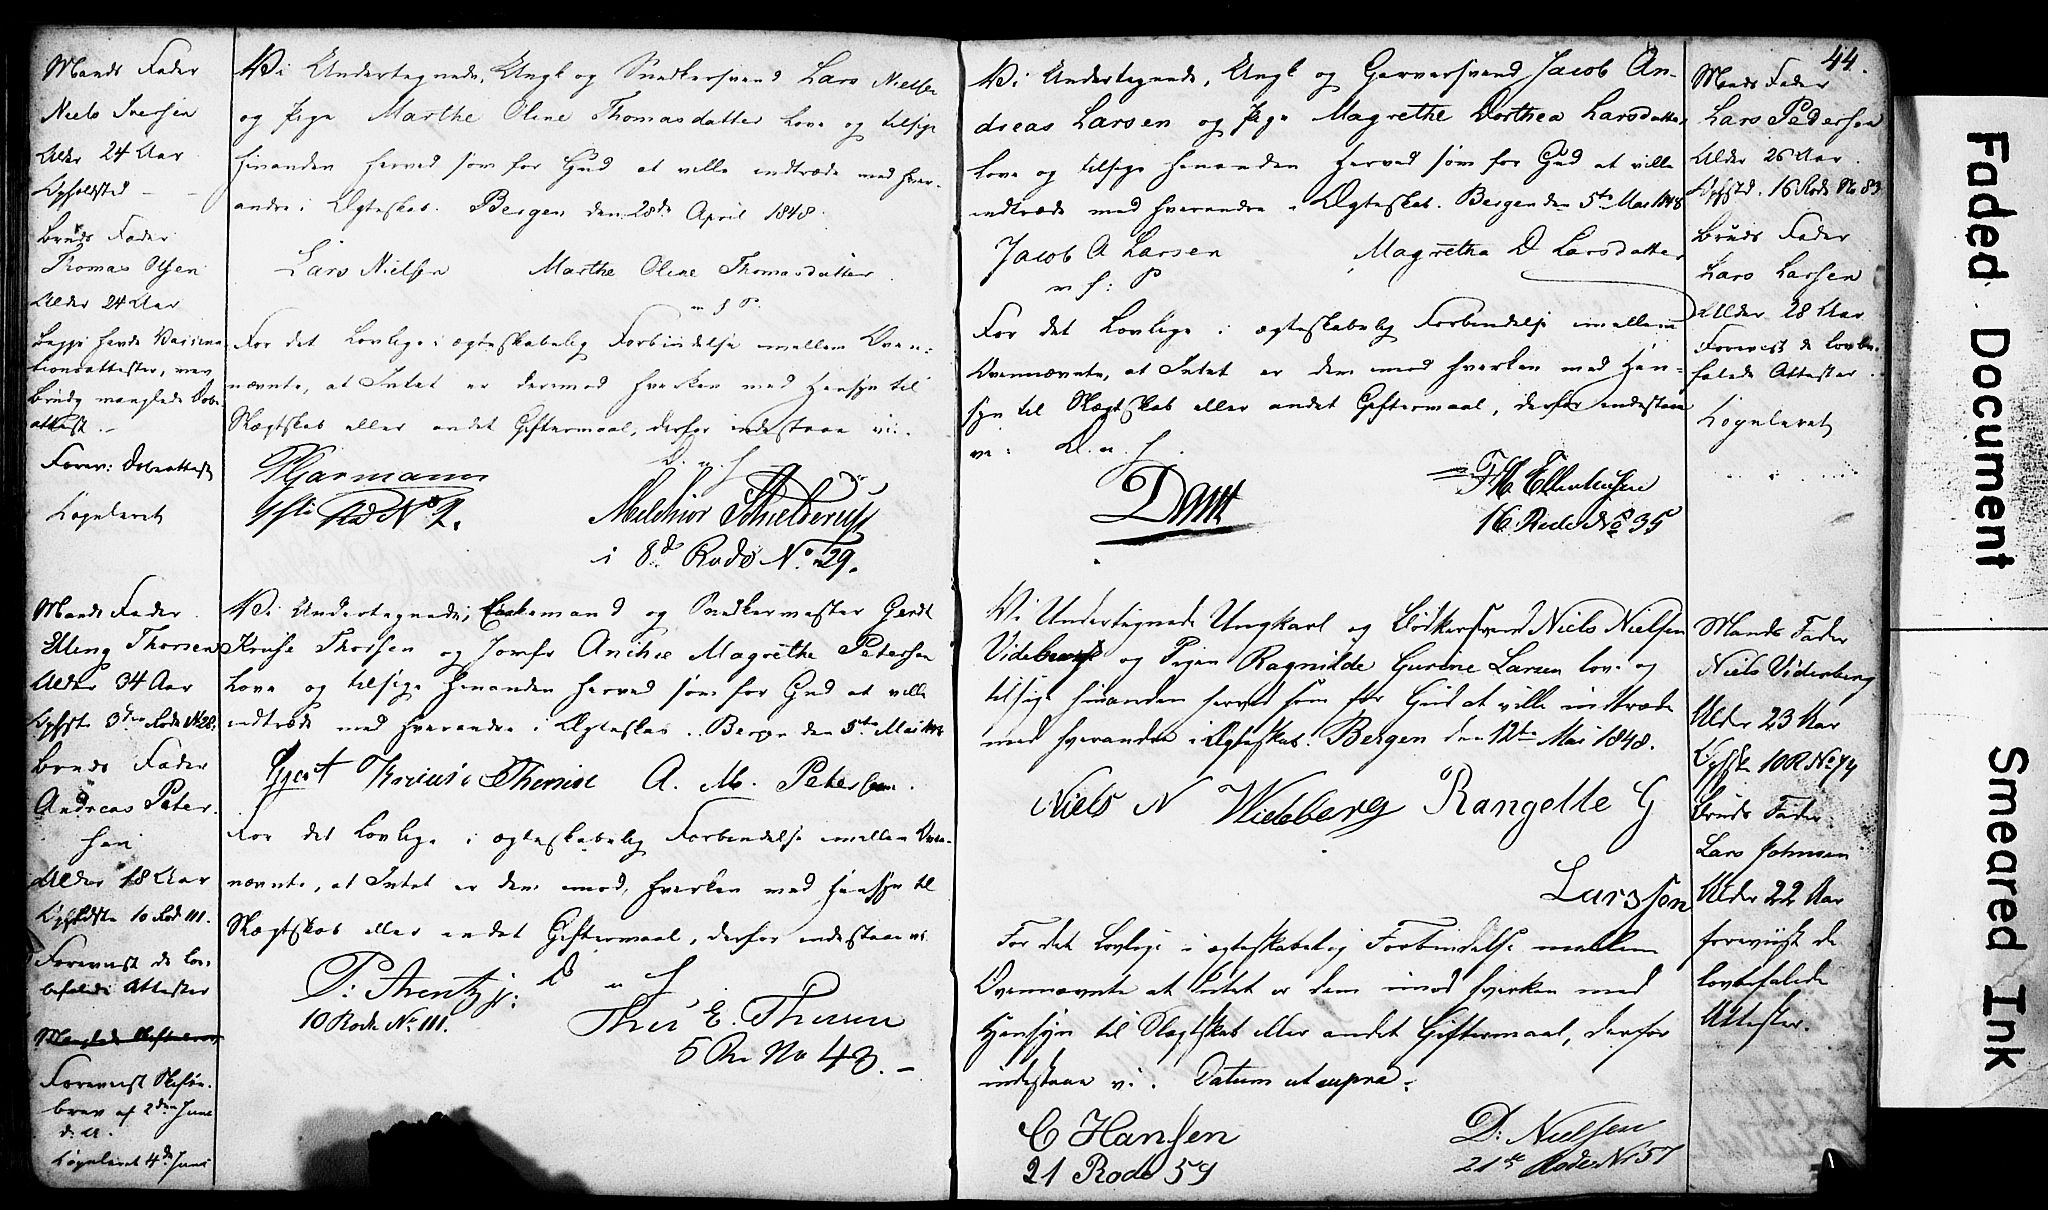 Mands Fader
Niels Iversen
Alder 24 Aar
Opholdsted - -
Bruds Fader
Thomas Olsen
Alder 24 Aar
Begge havde Vaccina
tionsattester, men
Bruden manglede Døbe
attest.
Forev: Døbeattest
Copuleret
Vi Undertegnede, Ungk og Snedkersvend Lars Nielsen
og Pige Marthe Oline Thomasdatter love og tilsige
hinanden herved som for Gud at ville indtræde med hver-
andre i Ægteskab. Bergen den 28de April 1848.
Lars Nielsen Marthe Oline Thomasdatter
m f P.
For det Lovlige i ægteskabelig Forbindelse imellem Oven-
nævnte, at Intet er derimod hverken med Hensyn til
Slægtskab eller andet Giftermaal, derfor indestaae vi.
D. u. S.
Melchior Schielderup
Rod No 2.
i 8d Rode No. 29.
Mands Fader
Elling Thorsen
Alder 34 Aar
Ophst 3die Rode No 28.
Bruds Fader
Andreas Peter-
sen
Alder 18 Aar
Opholdste 10 Rod 111.
Foreviist de lov-
befalede Attester
Foreviist Skifte-
brev af 2den Juni
d. A.
Copuleret 4de Juni
Vi Undertegnede, Enkemand og Snedkermester Gerdt
Kruse Thorsen og Jomfr Anikie Magrethe Petersen
love og tilsige hinanden herved som for Gud at ville
indtræde med hverandre i Ægteskab. Bergen den 5te Mai 1848
A. M. Petersen.
For det Lovlige i ægteskabelig Forbindelse imellem Oven-
nævnte, at Intet er dem imod, hverken med Hensyn til
Slægtskab eller andet Giftermaal, derfor indestaae vi
D u S
P: Arentz jr:
10 Rode No. 111.
E. Thorsen
5 Ro No 48. -
44.
Vi Undertegnede, Ungk og Garversvend Jacob An-
dreas Larsen og Pige Magrethe Dorthea Larsdatter
love og tilsige hinanden herved som for Gud at ville
indtræde med hverandre i Ægteskab. Bergen den 5te Mai 1848
Jacob A Larsen Magretha D Larsdatter
m f: P
For det Lovlige i ægteskabelig Forbindelse imellem
Ovennævnte, at Intet er dem imod hverken med Hen-
syn til Slægtskab eller andet Giftermaal, derfor indestaae
vi. D. u. S.
16 Rode No 35
Mands Fader
Lars Pedersen
Alder 26 Aar
Ophstd. 16 Rode No 83
Bruds Fader
Lars Larsen
Alder 28 Aar
Foreviist de lovbe-
falede Attester
Copuleret
Vi Undertegnede Ungkarl og Bødkersvend Niels Nielsen
Videberg og Pigen Ragnilde Gurine Larsen love og
tilsige hinanden herved som for Gud at ville indtræde
med hverandre i Ægteskab. Bergen den 12te Mai 1848.
Niels N Wiebberg Rangelle G
Larssen
For det Lovlige i ægteskabelig Forbindelse imellem
Ovennævnte at Intet er dem imod hverken med
Hensyn til Slægtskab eller andet Giftermaal, derfor
indestaae vi. Datum ut supra.
C Hansen
21 Rode 59
D: Nielsen
21de Rode No 57
Mands Fader
Niels Viderberg
Alder 23 Aar
Ophst 10 R No 74
Bruds Fader
Lars Johnsen
Alder 22 Aar
foreviist de
lovbefalede
Attester.
Faded Document
Smeared Ink